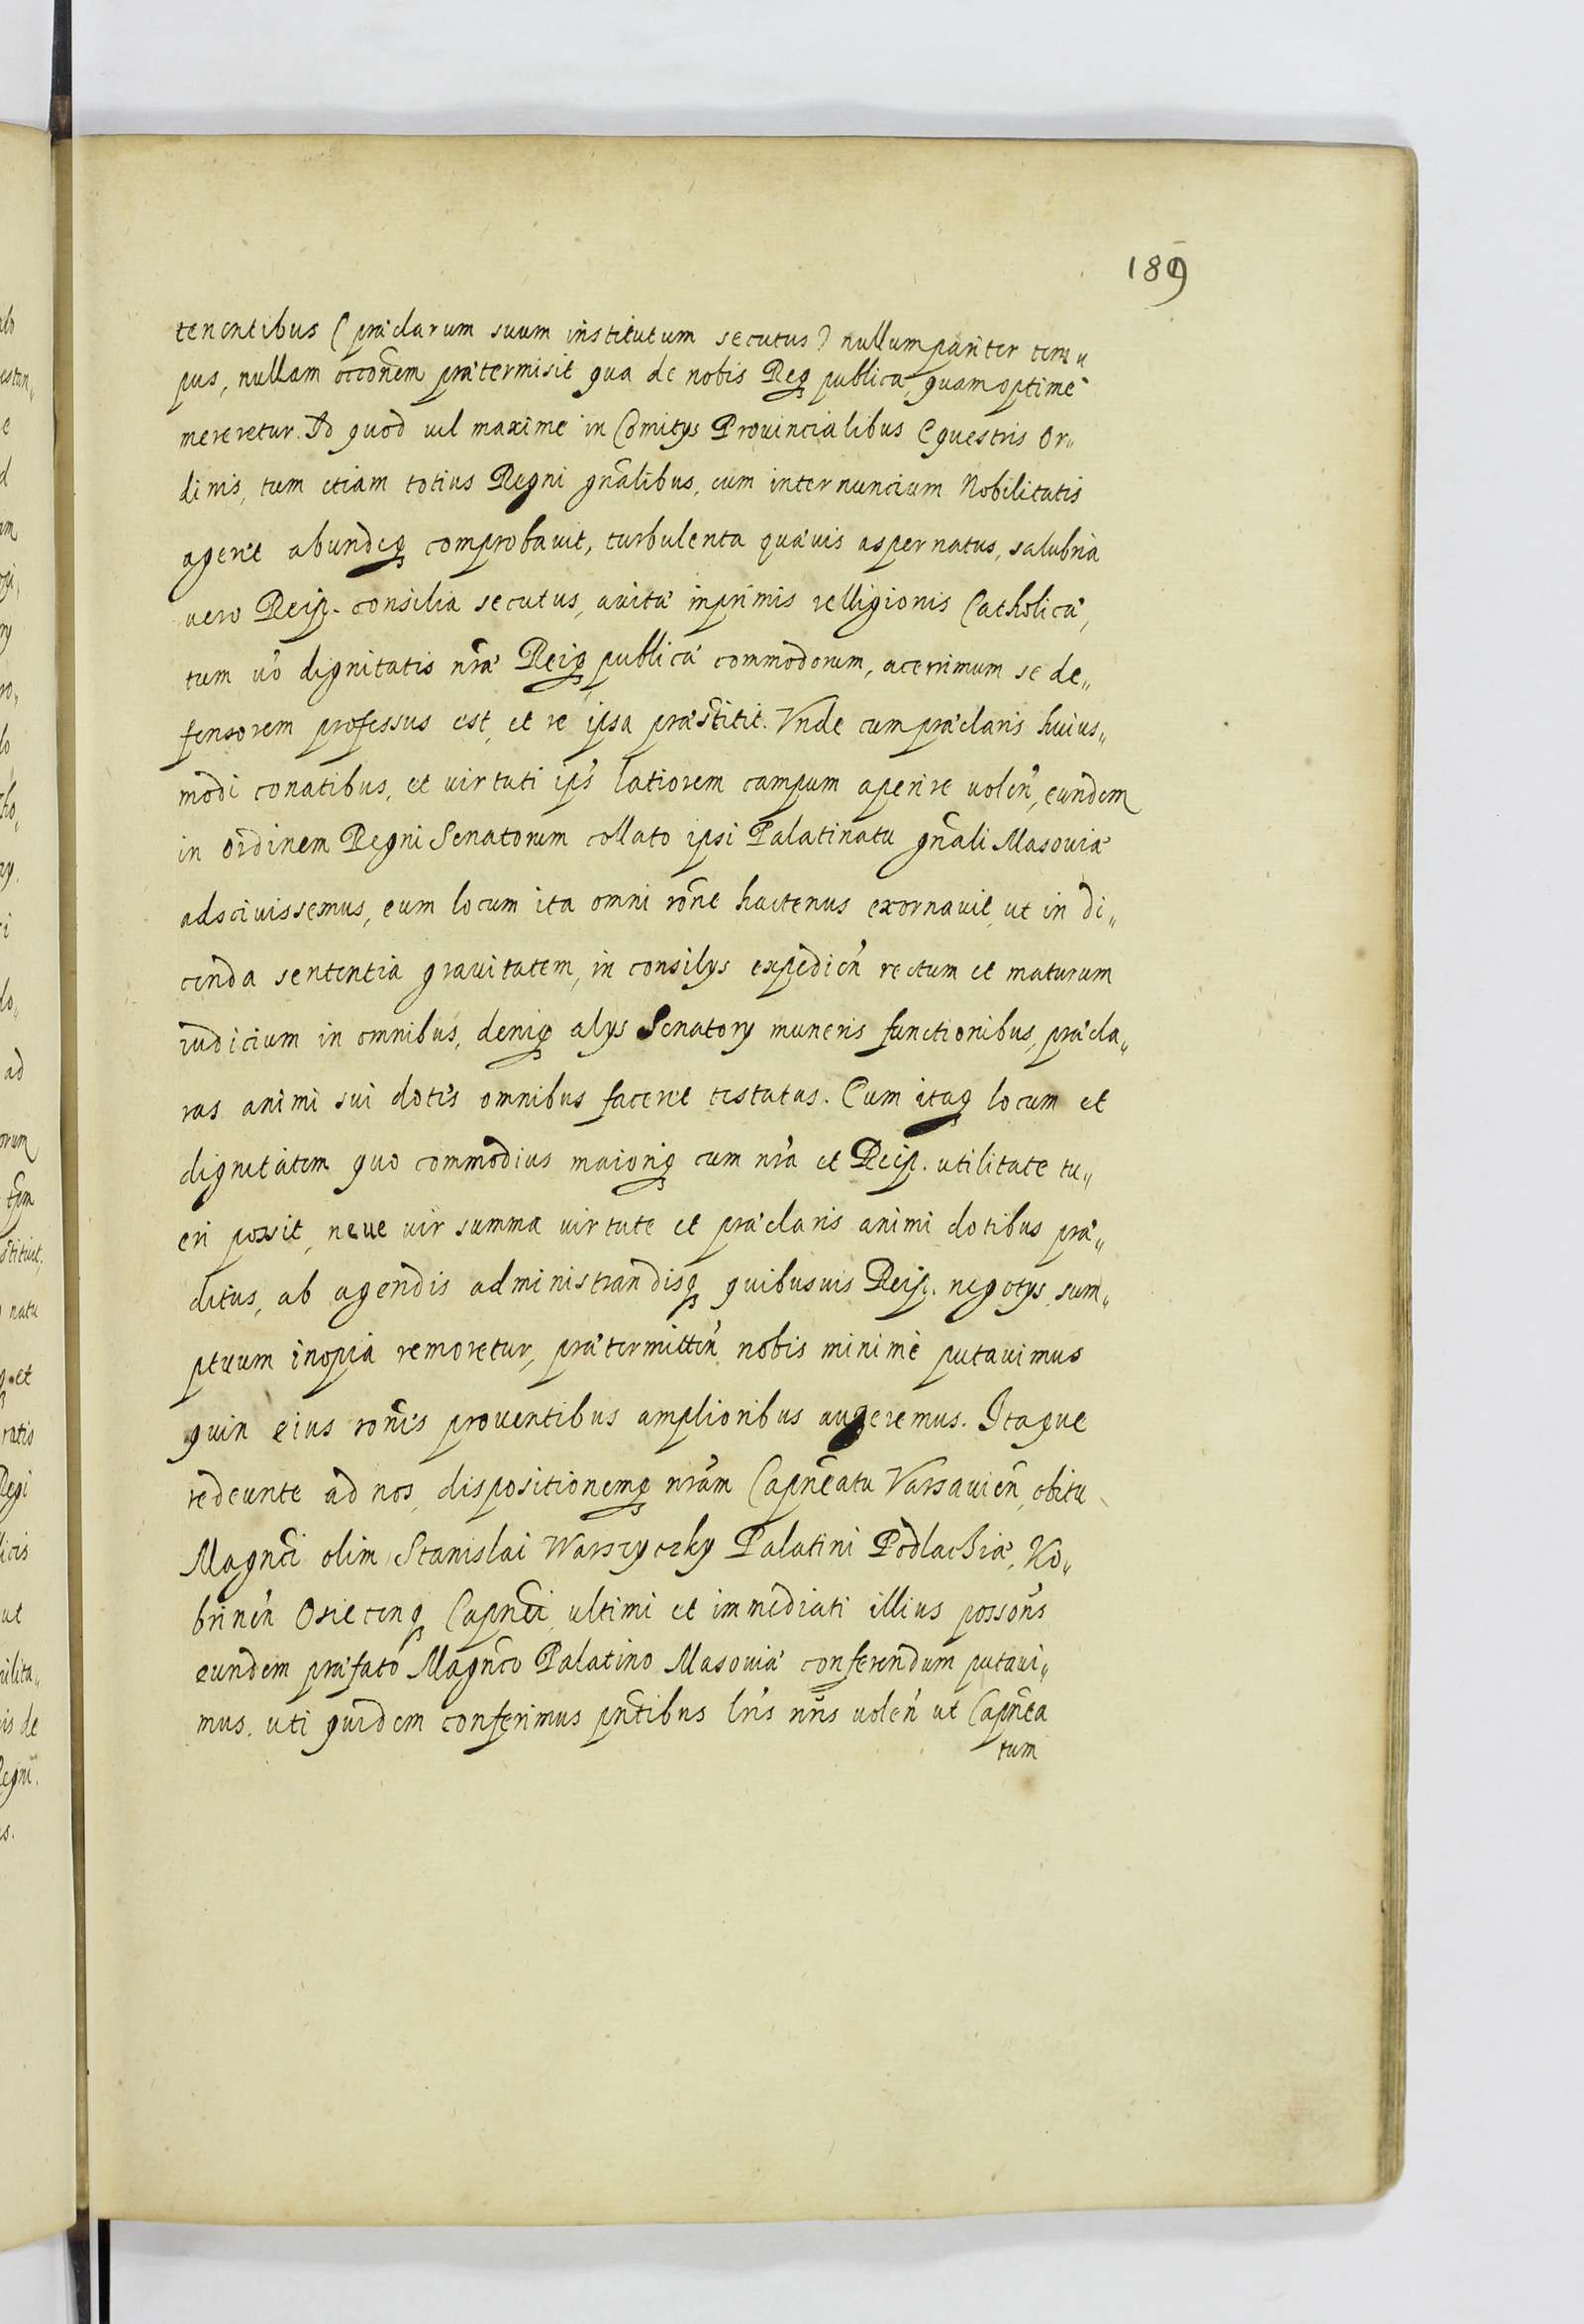 189
tenentibus (præclarum suum institutum secutus) nullum pariter tem„
pus, nullam occoñem prætermisit qua de nobis Reqꝫ publica, quam optime
mereretur. Id quod vel maxime in Comitys Prouincialibus Equestris Or„
dinis, tum etiam totius Regni gñalibus, cum internuncium Nobilitatis
ageret abundeqꝫ comprobauit, turbulenta quæuis aspernatus, salubria
uero Reip. consilia secutus, auitæ inprimis relligionis Catholicæ,
tum úo dignitatis nr̃æ Reiqꝫ publicæ commodorum, acerrimum se de„
fensorem professus est, et re ipsa præstitit. Vnde cum præclaris huius„
modi conatibus, et uirtuti ips̓ latiorem campum aperire uoleñ, eundem
in ordinem Regni Senatorum collato ipsi Palatinatu gñali Masouiæ
adsciuissemus, eum locum ita omni rõne hactenus exornauit, ut in di„
cenda sententia grauitatem, in consilys expedieñ rectum et maturum
iudicium in omnibus, deniqꝫ alys Senatory muneris functionibus, præcla„
ras animi sui dotes omnibus faceret testatas. Cum itaqꝫ locum et
dignitatem quo commodius maioriqꝫ cum nr̃a et Reip. utilitate tu„
eri possit, neue uir summa uirtute et præclaris animi dotibus præ„
ditus, ab agendis administrandisqꝫ quibusuis Reip. negotys, sum„
ptuum inopia remoretur, prætermitteñ nobis minime putauimus
quin eius roñis prouentibus amplioribus augeremus. Itaque
redeunte ad nos, dispositionemqꝫ nr̃am Capñeatu Varsauieñ, obitu
Magñci olim Stanislai Warszyczky Palatini Podlachiæ, Ko„
brineñ Osiecenqꝫ Capñei, ultimi et immediati illius possoñs
eundem præfato Magñco Palatino Masouiæ conferendum putaui„
mus. uti quidem conferimus pñtibus lr̃is nr̃is uoleñ ut Capñea
tum